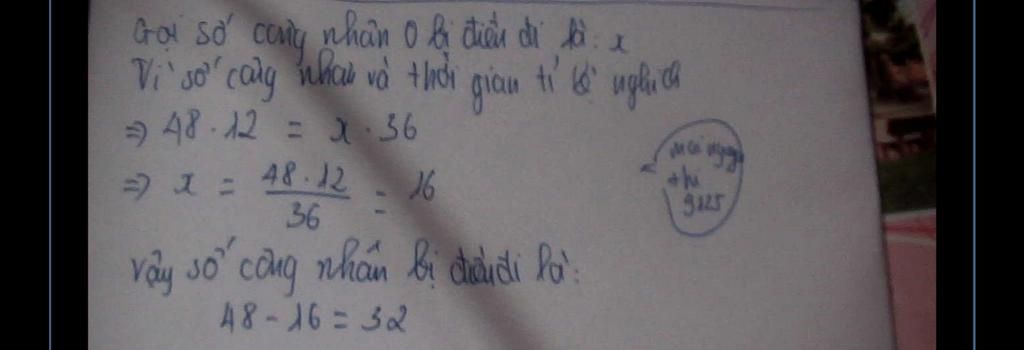 Gọi số công nhân 0 bị điều đi là: x
Vì số công nhân và thời gian tỉ lệ nghịch
⇒ 48 . 12 = x . 36
⇒ x = 48 . 12 / 36 = 16
Vậy số công nhân bị điều đi là:
48 - 16 = 32
thi